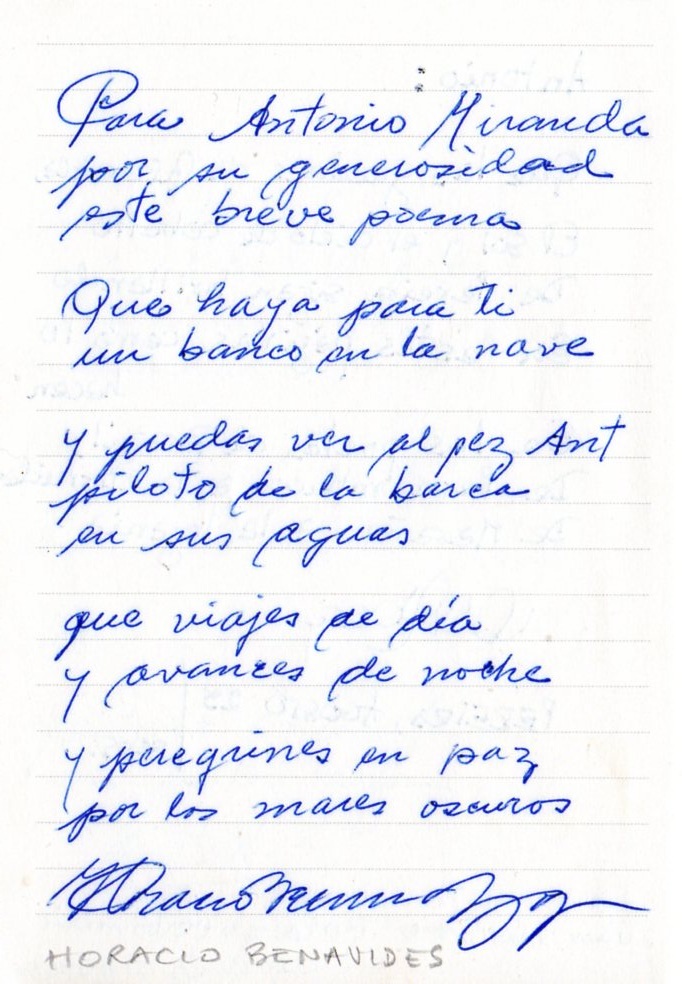 Para Antonio Miranda
por su generosidad
este breve poema
Que haya para ti
un banco en la nave
y puedas ver al pez Ant
piloto de la barca
en sus aguas
que viajes de día
y avances de noche
y peregrines en paz
por los mares oscuros
Horacio Benavides
HORACIO BENAVIDES